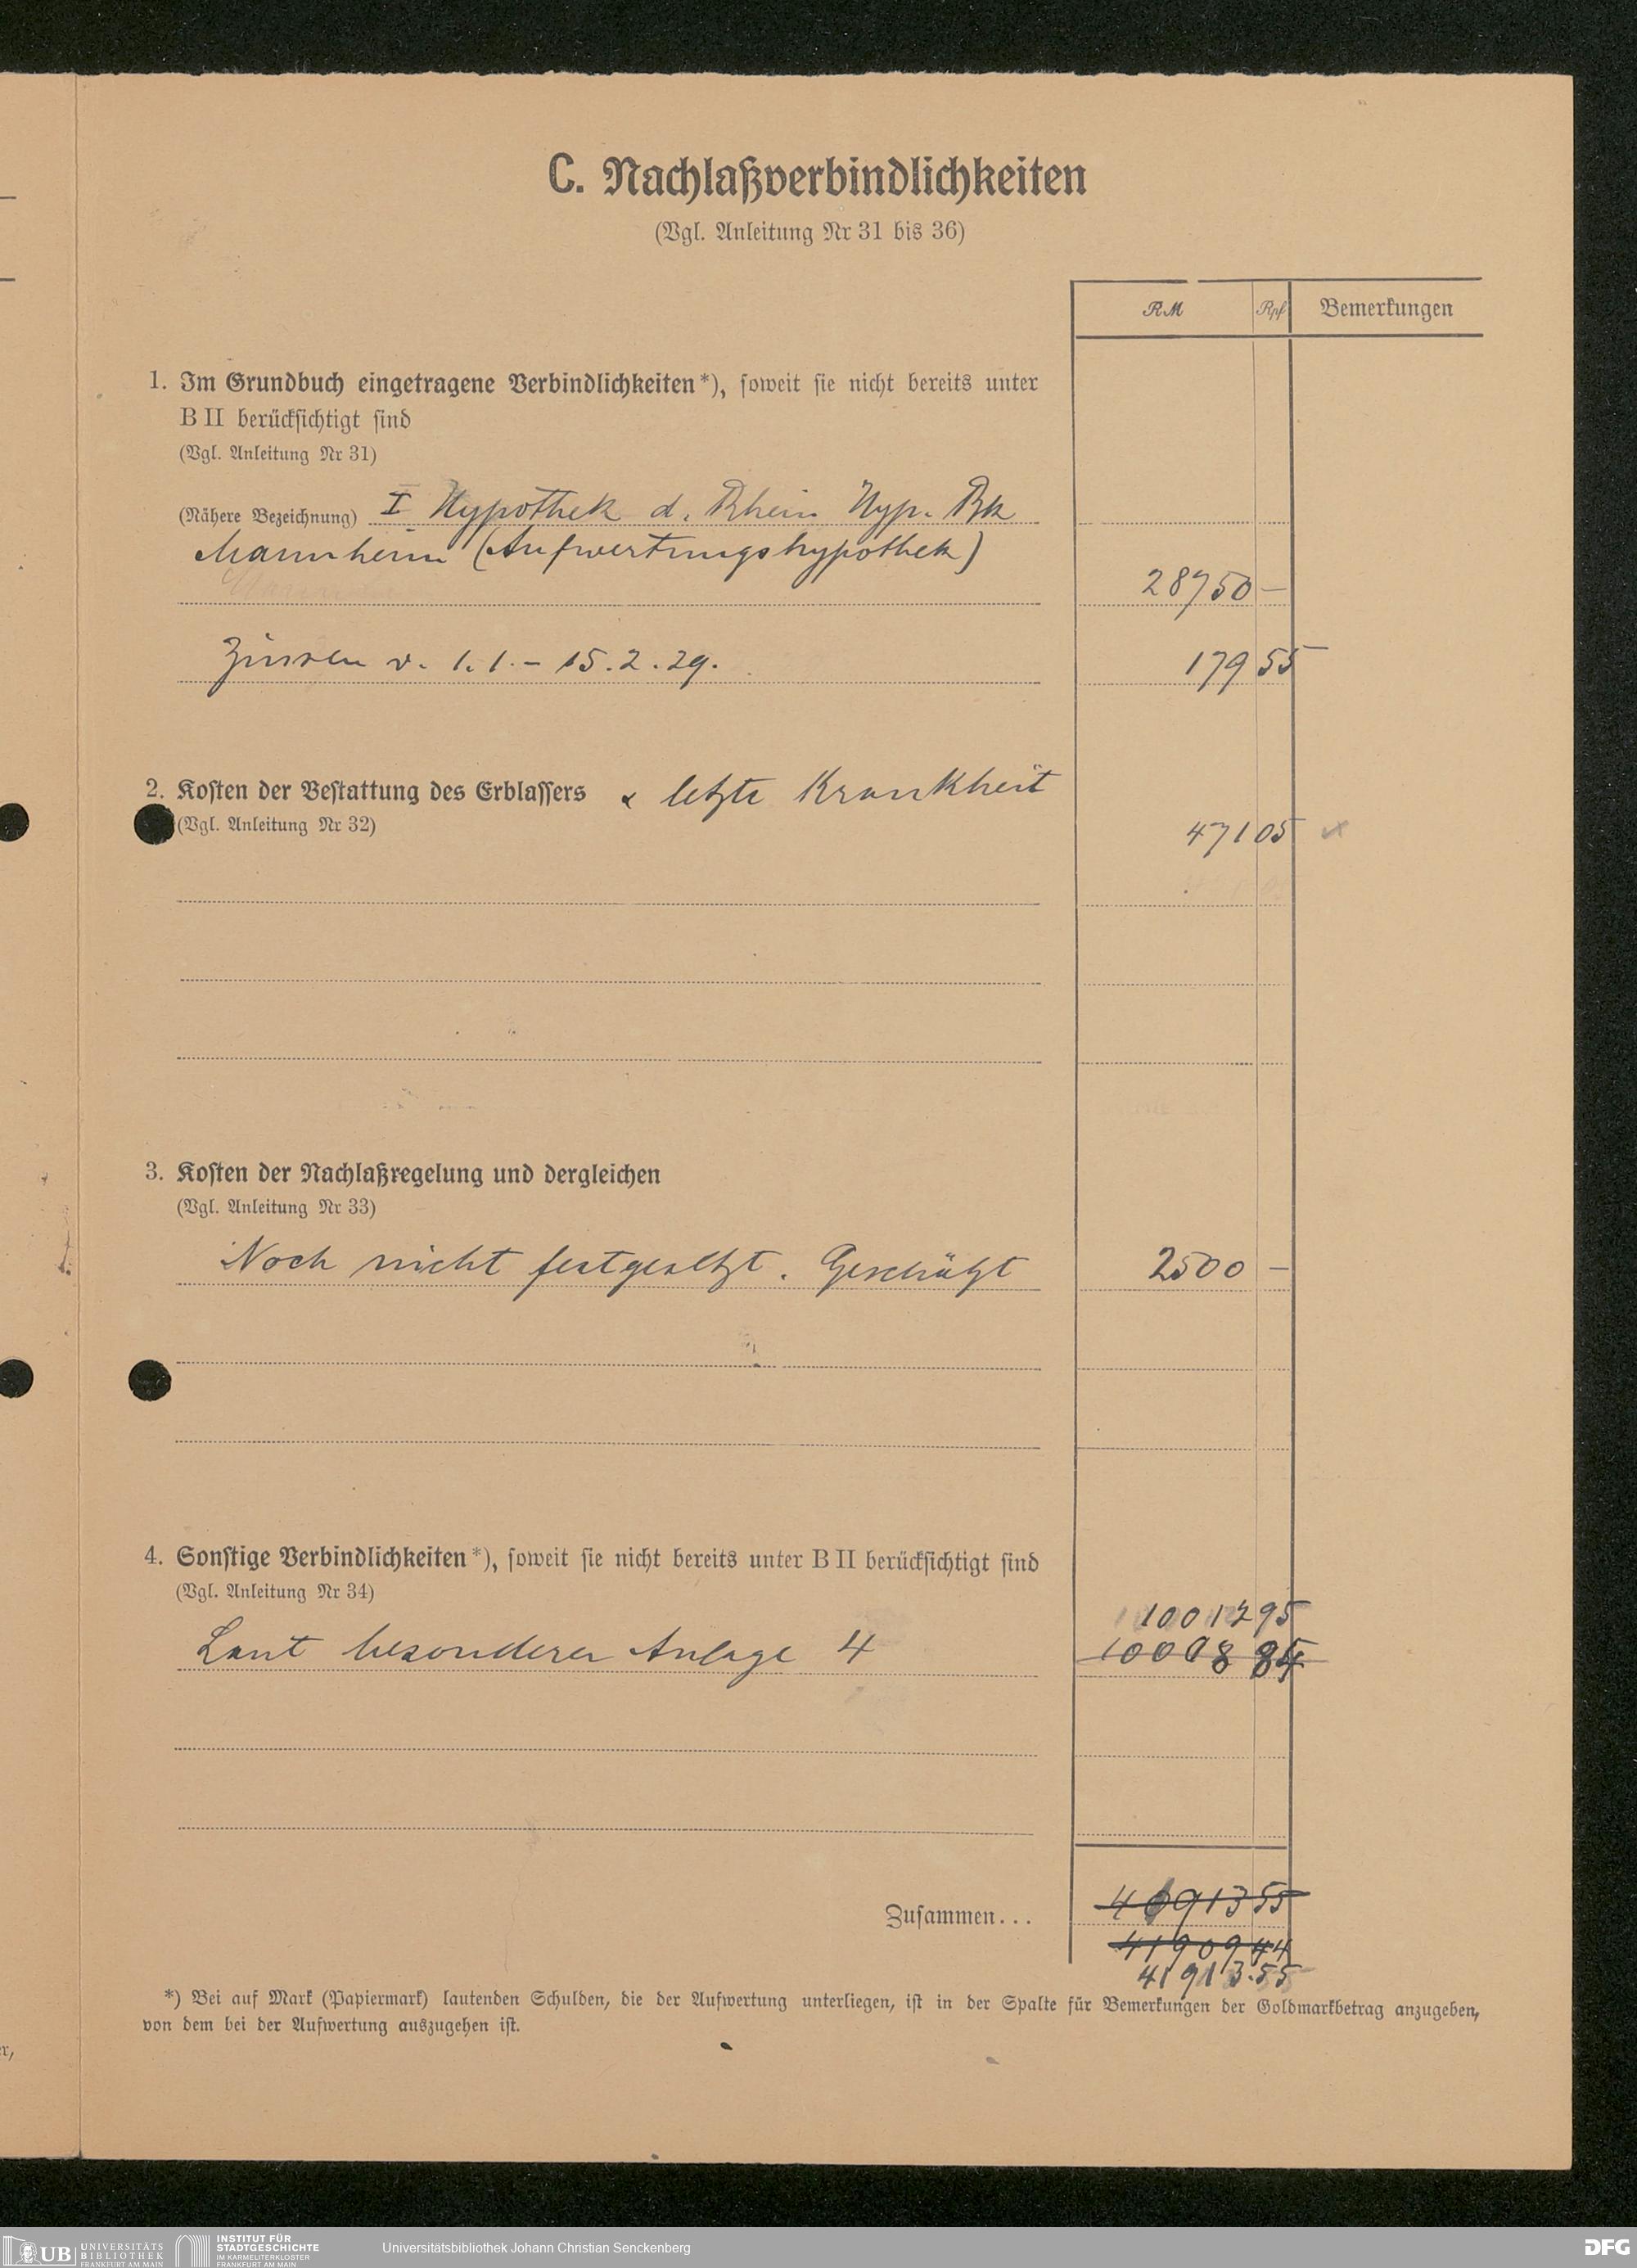 C. Nachlaßverbindlichkeiten
(Vgl. Anleitung Nr 31 bis 36)
RM Rpf Bemerkungen
1. Im Grundbuch eingetragene Verbindlichkeiten*), soweit sie nicht bereits unter
B II berücksichtigt sind
(Vgl. Anleitung Nr 31)
(Nähere Bezeichnung) I Hypothek d. Rhein. Hyp. Bk
Mannheim (Aufwertungshypothek)
28750 –
Zinsen v. 1.1. – 15.2.29. 179 55
2. Kosten der Bestattung des Erblassers & letzte Krankheit
(Vgl. Anleitung Nr 32) 471 05
3. Kosten der Nachlaßregelung und dergleichen
(Vgl. Anleitung Nr 33)
Noch nicht festgesetzt. Geschätzt 2500 –
4. Sonstige Verbindlichkeiten*), soweit sie nicht bereits unter B II berücksichtigt sind
(Vgl. Anleitung Nr 34)
10012 95
Laut besonderer Anlage 4 10008 84
Zusammen... 40913 55
41909 44
41913.55
*) Bei auf Mark (Papiermark) lautenden Schulden, die der Aufwertung unterliegen, ist in der Spalte für Bemerkungen der Goldmarkbetrag anzugeben,
von dem bei der Aufwertung auszugehen ist.
er,
UB UNIVERSITÄTS
BIBLIOTHEK
FRANKFURT AM MAIN
INSTITUT FÜR
STADTGESCHICHTE
IM KARMELITERKLOSTER
FRANKFURT AM MAIN
Universitätsbibliothek Johann Christian Senckenberg
DFG